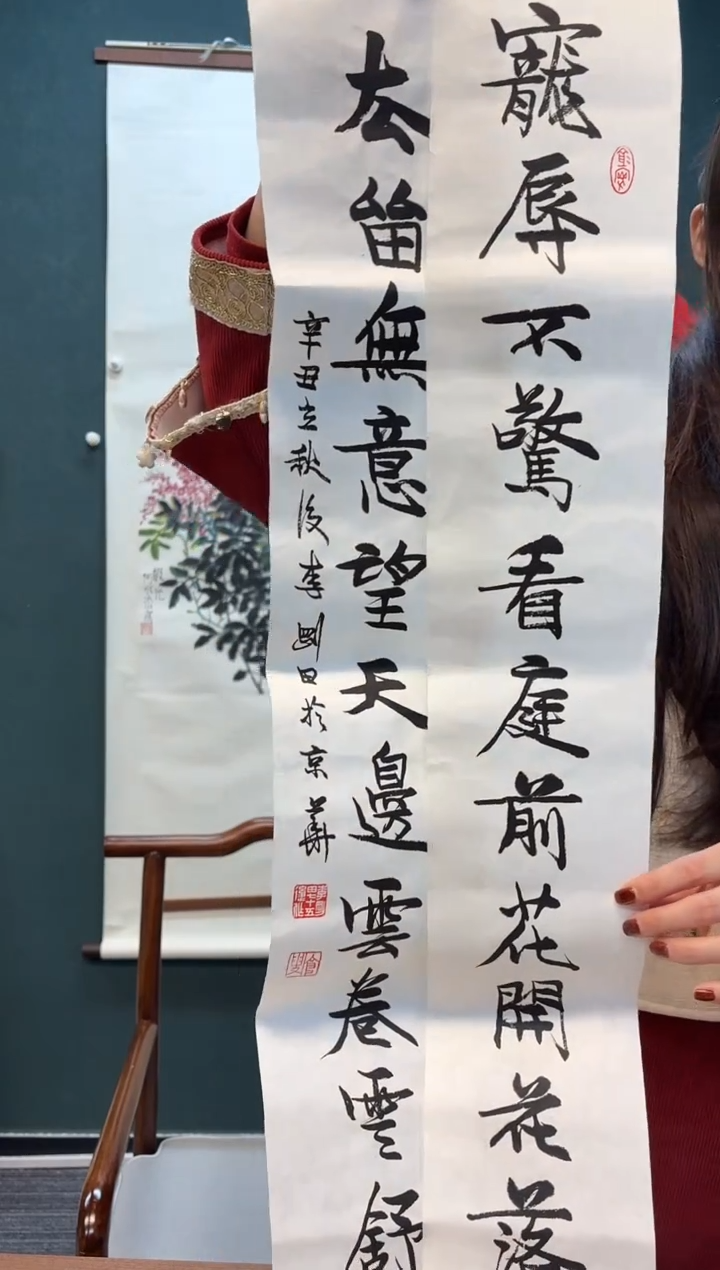 寵辱不驚看庭前花開花落
去留無意望天邊雲卷雲舒
辛丑立秋後李剛田於京華